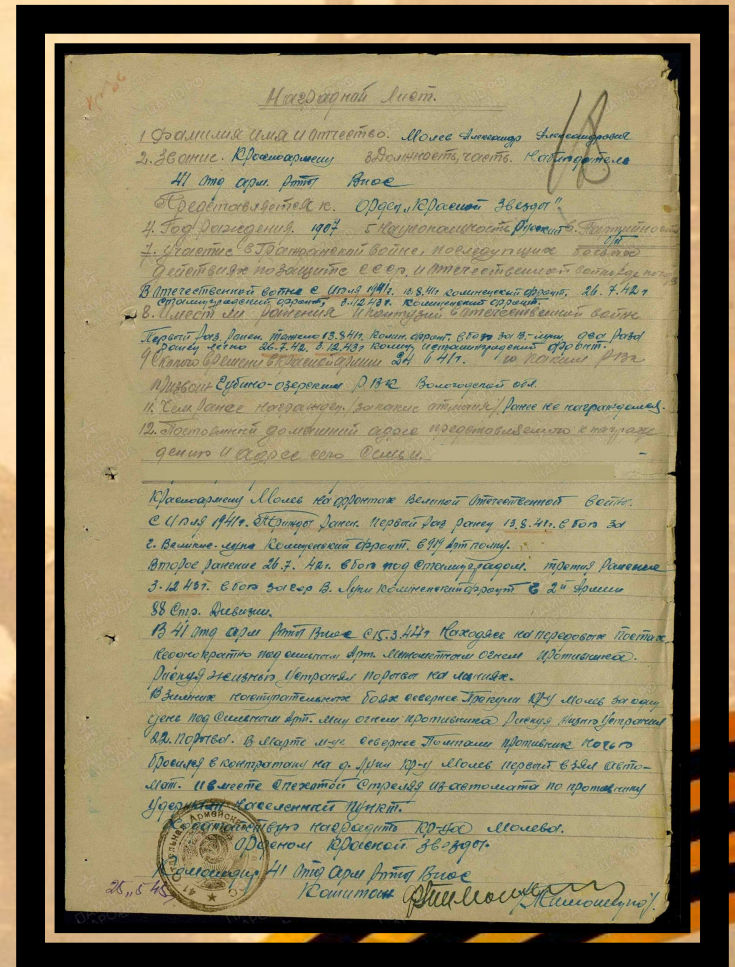 Наградной Лист.
1 Фамилия имя и отчество. Молев Александр Александрович
2. Звание. Красноармеец 3 Должность, часть. Наблюдатель
41 отд арм роты Внос
Представляется к. Орден „Красной Звезды"
4. Год рождения. 1907 г. Национальность Русский 6. Партийность
7. участие в Гражданской войне, последующих боевых
действиях по защите СССР, и отечественной войне
В Отечественной войне с Июля 1941г. 13.8.41г Калининский фронт. 26.7.42г
Сталинградский фронт, 3.12.43г. Калининский фронт.
8. Имеет ли ранения и контузии в отечественной войне
Первый раз. Ранен. тяжело 13.8.41г. Калин. фронт. в бою за В-Луки, два раза
ранен легко 26.7.42. 3.12.43г Сталинградский фронт.
9 С какого времени в Красной армии 24 6 41г. 10 Каким РВК
призван Субино-озерским РВК Вологодской обл.
11. Чем ранее награжден (за какие отличия) Ранее не награждался.
12. Постоянный домашний адрес представляемого к награж
дению и адрес его Семьи.
Красноармеец Молев на фронтах Великой Отечественной войны.
С Июля 1941г. Трижды ранен. Первый раз ранен 13.8.41г. в бою за
г. Великие-Луки Калининский фронт. в 919 Арт полку.
Второе ранение 26.7. 42г. в бою под Сталинградом. третия Ранение
3.12 43г. в бою за гор В. Луки Калининский фронт 2й Армии
88 Стр. Дивизии.
В 41 отд арм роты Внос с 15.3.44г Находясь на передовых постах,
неоднократно под сильным Арт. Минометным огнем Противника.
Рискуя жизнью Устранял порывы на линиях.
В Зимних наступательных боях севернее кр-ц Молев за один
день под Сильным Арт. Мин огнем противника Рискуя жизнью Устранил
22. порыва. В Марте м-це севернее противник ночью
бросился в контратаку на д. Луки кр-ц Молев первый взял авто-
мат. и вместе с пехотой Стреляя из автомата по противнику
Удержали Населенный пункт.
Ходатайствую наградить кр-ца Молева.
Орденом Красной Звезды.
Командир 41 отд арм роты Внос
Капитан
25.5 45г